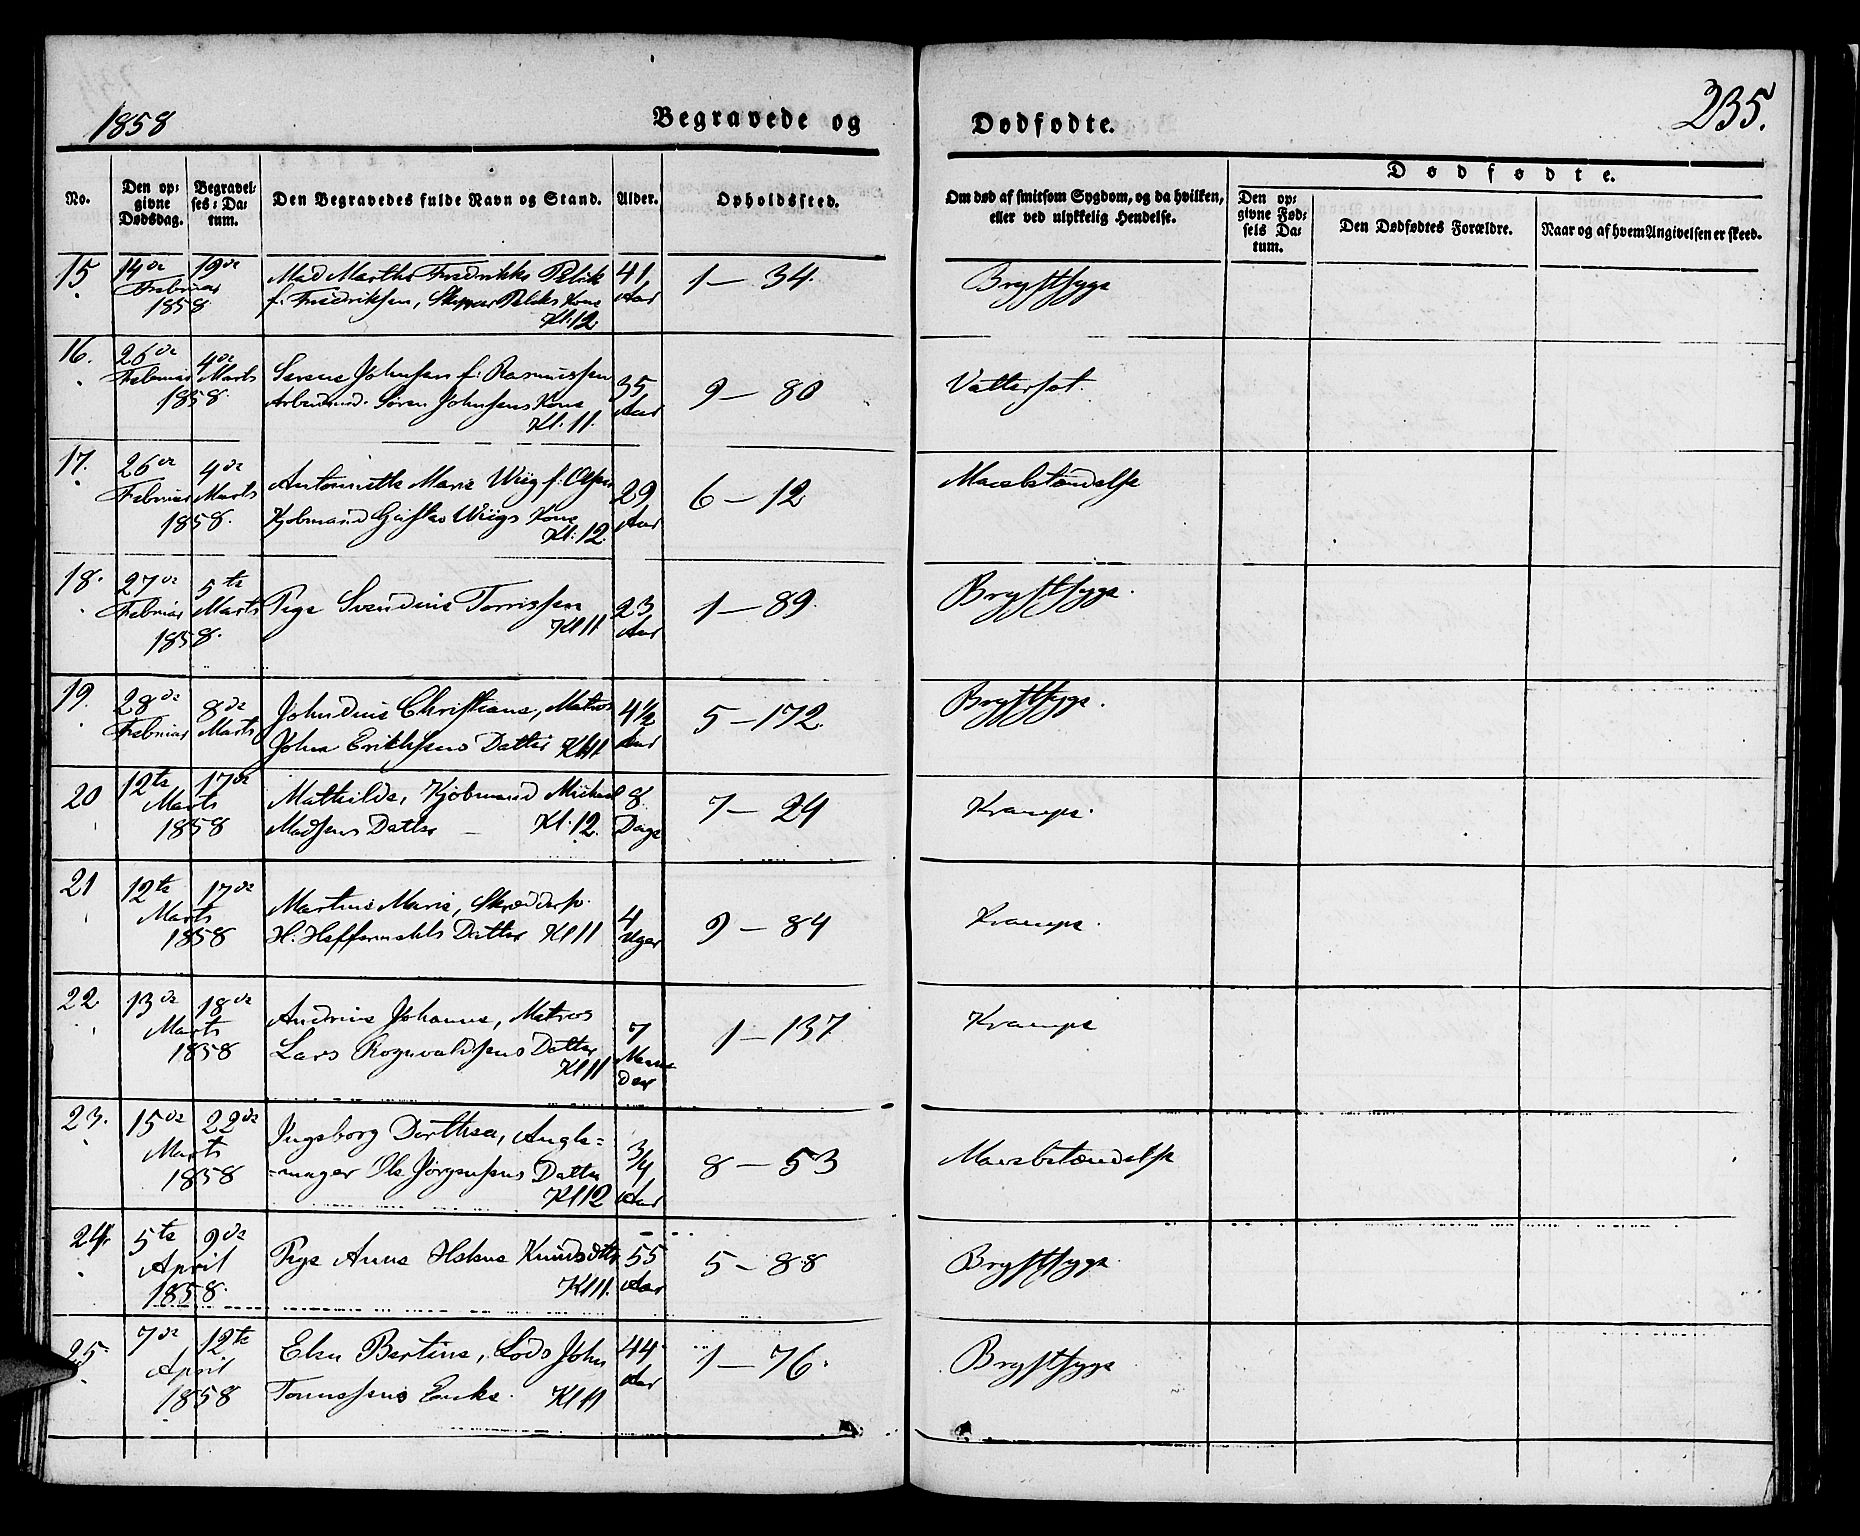 1858
Begravede og
Dødfødte.
235.
No.
Den opgivne Dødsdag.
Begravelses-Datum.
Den Begravedes fulde Navn og Stand.
Alder.
Opholdssted.
Om død af smitsom Sygdom, og da hvilken, eller ved ulykkelig Hendelse.
Dødfødte.
Den opgivne Fødsels Datum.
Den Dødfødtes Forældre.
Naar og af hvem Angivelsen er skeed.
15. 14de Februar 19de 1858 Mad Marthe Fredrikke Pelik 41 Aar 1–34. Brystsyge
f. Fredriksen, Skipper Peliks Kone
Kl. 12.
16. 26de Februar 4de Marts 1858. Serene Johnsen f. Rasmussen 35 Aar 9–80 Vattersot.
Arbeidsmd. Søren Johnsens Kone
Kl. 11.
17. 26de Februar 4de Marts 1858. Antonette Marie Wiig f. Olsen 29 Aar 6–12 Mavebetændelse
Kjøbmand Gustav Wiigs Kone
Kl. 12.
18. 27de Februar 5te Marts 1858. Pige Svendine Torrissen 23 Aar 1–89. Brystsyge.
Kl 11
19. 28de Februar 8de Marts Johndine Christiane, Matros 4½ Aar 5–172. Brystsyge.
John Erichsens Datter Kl 11
20 12te Marts 17de 1858 Mathilde, Kjøbmand Michael 8 Dage 7–24 Krampe.
Madsens Datter – Kl. 12.
21 12te Marts 17de 1858 Martine Marie, Skrædders. 4 Uger 9–84 Krampe.
H. Datter Kl 11
22. 13de Marts 18de 1858 Andrine Johanne, Matros 7 Maaneder 1–137 Krampe
Lars Rognvaldsens Datter
Kl 11
23. 15de Marts 22de 1858 Ingeborg Dorthea, 3/4 Aar 8–53 Mavebetændelse
-mager Ole Jørgensens Datter
Kl 12
24. 5te April 9de 1858. Pige Anne Helene Knudsdtr 55 Aar 5–88 Brystsyge.
Kl 11.
25. 7de April 12te 1858 Elen Bertine, Lods John 44 Aar 1–76. Brystsyge
Tønnessens Enke. Kl 11